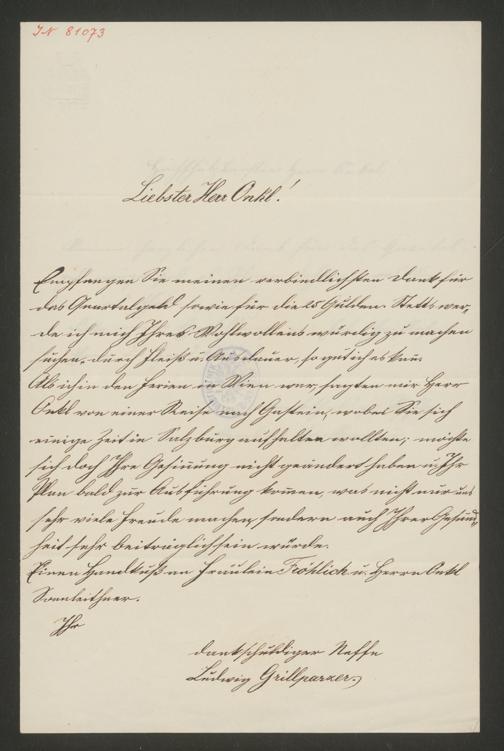 IN 81073
Liebster Herr Onkl!
Empfangen Sie meinen verbindlichsten Dank für
das Quartalgeld sowie für die 25 Gulden. Stetts wer-
de ich mich Ihres Wohlwollens würdig zu machen
suchen, durch Fleiß u. Ausdauer, so gut ich es kann.
Als ich in den Ferien in Wien war, sagten mir Herr
Onkl von einer Reise nach Gastein, wobei Sie sich
einige Zeit in Salzburg aufhalten wollten; möchte
sich doch Ihre Gesinnung nicht geändert haben u. Ihr
Plan bald zur Ausführung kommen, was nicht nur uns
sehr viele Freude machen, sondern auch Ihrer Gesund-
heit sehr beiträglich sein würde.
Einen Handkuß an Fräulein Fröhlich u. Herrn Onkl
Sonnleithner.
Ihr
dankschuldiger Neffe
Ludwig Grillparzer.